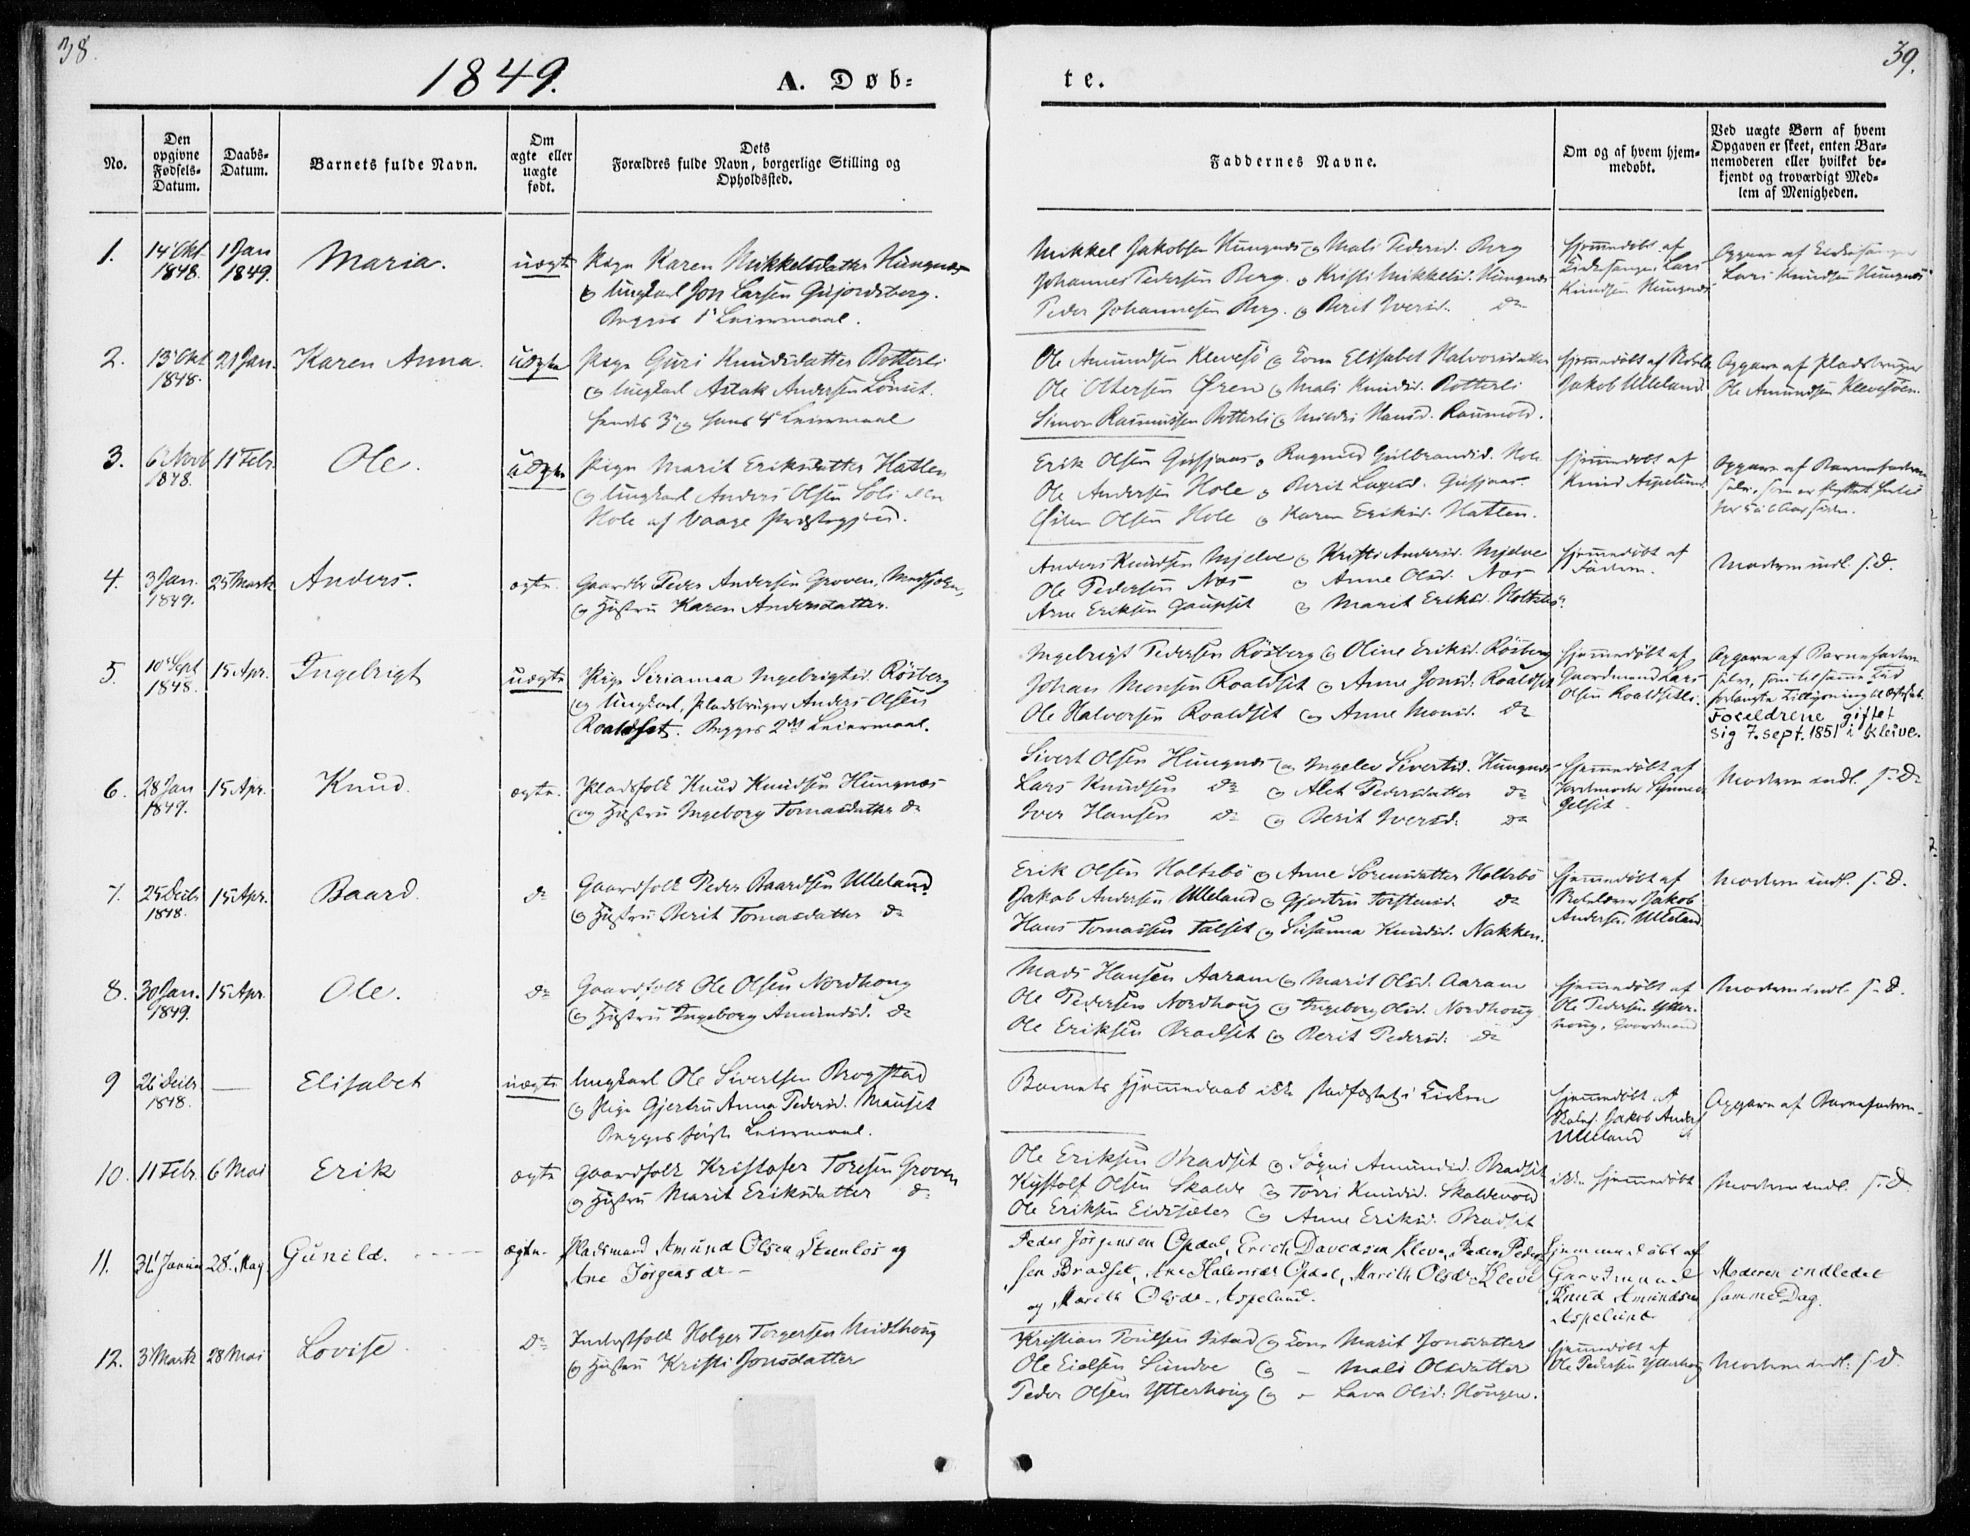 38.
39.
1849.
A. Døb=
te.
No.
Den opgivne Fødsels-Datum.
Daabs-Datum.
Barnets fulde Navn.
Om ægte eller uægte født.
Dets Forældres fulde Navn, borgerlige Stilling og Opholdssted.
Faddernes Navne.
Om og af hvem hjemmedøbt.
Ved uægte Børn af hvem Opgaven er skeet, enten Barnemoderen eller hvilket bekjendt og troværdigt Medlem af Menigheden.
1.
14 Okt 1848.
1 Jan 1849.
Maria.
uægte
Pige Karen Mikkelsdatter Hungnæs
og Ungkarl Jon Larsen Gujordsberg.
Begges 1ste Leiermaal.
Mikkel Jakobsen Hungnes og Mali Pedersd. Berg
Johannes Pedersen Berg. og Kristi Mikkelsd. Hungnes
Peder Johannesen Berg. og Berit Iversd. do
hjemmedøbt af
Kirkesanger Lars
Knudsen Hungnes.
Opgave af Kirkesanger
Lars Knudsen Hungnes
2.
13 Okt 1848.
21 Jan.
Karen Anna.
uægte
Pige Guri Knudsdatter Botterli
og Ungkarl Aslak Andersen Lönset.
hendes 3die og hans 4de Leiermaal
Ole Amundsen Klevesö og Kona Elisabet Halvorsdatter
Ole Ottersen Øren og Mali Knudsd. Botterli
Simon Rasmussen Botterli og Mildri Hansd. Raumold.
hjemmedøbt af
Jakob Ulleland
Opgave af Pladsbruger
Ole Amundsen Klevesöen.
3.
6 Novb 1848.
11 Febr.
Ole.
uægte
Pige Marit Eriksdatter Hatlen
og Ungkarl Anders Olsen Soli eller
Hole af Vaage Præstegjeld.
Erik Olsen Gusjaas og Ragnild Gulbrandsd. Hole
Ole Andersen Hole og Berit Larsd. Gusjaas
Olsen Hole og Karen Eriksd. Hatlen.
hjemmedøbt af
Knud Aspelund
Opgave af Barnefaderen
selv, som er
for 5 à 6 Aar siden.
4.
3 Jan. 1849.
25 Marts
Anders.
ægte.
Gaardbr Peder Andersen Groven,
og Hustru Karen Andersdatter.
Anders Knudsen Mjelve og Kristi Andersd. Mjelve
Ole Pedersen Næs og Anne Olsd. Næs
Arne Eriksen Gaupset og Marit Eriksd. Holtsbö
hjemmedøbt af
Faderen.
Moderen indl. s. D.
5.
10 Sept 1848.
15 Apr.
Ingebrigt
uægte
Pige Serianna Ingebrigtsd. Rösberg
og Ungkarl, Pladsbruger Anders Olsen
Roaldset. Begges 2det Leiermaal.
Ingebrigt Pedersen Rösberg og Oline Eriksd. Rösberg
Johan Monsen Roaldset og Anne Jonsd. Roaldset
Ole Halvorsen Roaldset og Anne Monsd. do
hjemmedøbt af
Gaardmand Lars
Olsen Roaldsetli.
Opgave af Barnefaderen
selv, som til samme Tid
forlangte Tillysning til Ægteskab.
Foreldrene giftet
sig 7. sept. 1851 i Kleive.
6.
28 Jan 1849.
15 Apr.
Knud.
ægte.
Pladsfolk Knud Knudsen Hungnes
og Hustru Ingeborg Tomasdatter do
Sivert Olsen Hungnes og Ingelev Sivertsd. Hungnes
Lars Knudsen do og Alet Pedersdatter do
Iver Hansen do og Berit Iversd. do
hjemmedøbt af
Jordmoder
Gelset
Moderen indl. s. D.
7.
25 Decbr 1848.
15 Apr.
Baard.
do
Gaardfolk Peder Baardsen Ulleland
og Hustru Berit Tomasdatter do
Erik Olsen Holtsbö og Anne Sörensdatter Holtsbö
Jakob Andersen Ulleland og Gjertru Torstensd. do
Hans Tomassen Talset og Susanna Knudsd. Nakken.
hjemmedøbt af
Skolelærer Jakob
Andersen Ulleland
Moderen indl. s. D.
8.
30 Jan. 1849.
15 Apr.
Ole.
do
Gaardfolk Ole Olsen Nordhoug
og Hustru Ingeborg Amundsd. do
Mads Hansen Aaram og Marit Olsd. Aaram
Ole Pedersen Nordhoug og Ingeborg Olsd. Nordhoug
Ole Eriksen Bradset og Berit Pedersd. do
hjemmedøbt af
Ole Pedersen Ytter-
houg, Gaardmand
Moderen indl. s. D.
9
26 Decbr. 1848.
—
Elisabet
uægte
Ungkarl Ole Sivertsen Brogstad
og Pige Gjertru Anna Pedersd. Mauset
Begges første Leiermaal.
Barnets Hjemmedaab ikke stadfæstet i Kirken
hjemmedøbt af
Skolel. Jakob Anders
Ulleland
Opgave af Barnefaderen.
10.
11 Febr.
6 Mai
Erik
ægte
Gaardfolk Kristofer Toresen Groven
og Hustru Marit Eriksdatter do
Ole Eriksen Bradset og Sögni Amundsd. Bradset
Kristofer Olsen Skalde og Torri Knudsd. Skaldevold
Ole Eriksen Eidssæter og Anne Eriksd. Bradset
ikke hjemmedøbt
Moderen indl. s. D.
11.
31 Januar
28 May
Gunild.
ægte
Pladsmand Amund Olsen Stenlös og
Ane Jörgensdr —
Peder Jörgensen Opdal, Erich Davedsen Kleve, Peder Peder-
sen Bradset, Ane Halversdr Opdal, Marith Olsdr Kleve
og Marith Olsdr Aspelund.
hjemmedøbt af
Gaardmand
Knud Amundsen
Aspelund
Moderen indledet
samme Dag.
12.
3 Marts
28 Mai
Lovise
do
Inderstfolk Holger Torgersen Midthoug
og Hustru Kristi Jonsdatter
Kristian Poulsen Istad og Kona Marit Jonsdatter
Ole Eielsen Sundve og — Mali Olsdatter
Peder Olsen Ytterhoug og — Lava Olsd. Hougen.
hjemmedøbt af
Ole Pedersen Ytterhoug
Moderen indl. s. D.